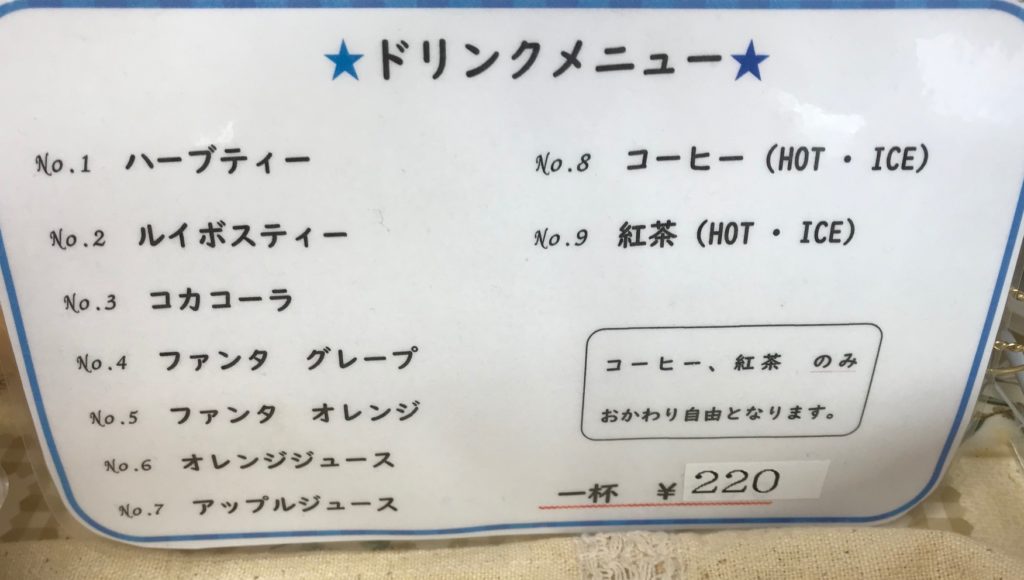 ★ドリンクメニュー★
No.1 ハーブティー
No.2 ルイボスティー
No.3 コカコーラ
No.4 ファンタ グレープ
No.5 ファンタ オレンジ
No.6 オレンジジュース
No.7 アップルジュース
No.8 コーヒー (HOT・ICE)
No.9 紅茶 (HOT・ICE)
コーヒー、紅茶 のみ
おかわり自由となります。
一杯 ¥220